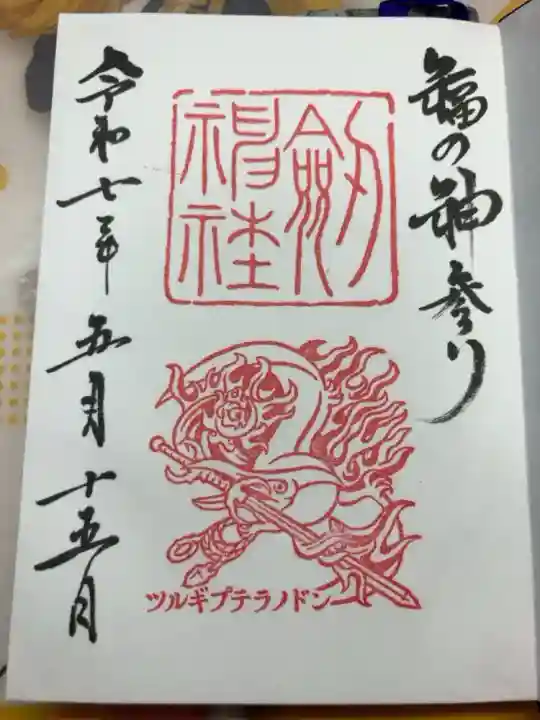 福の神参り
劔神社
ツルギプテラノドン
令和七年五月十五日